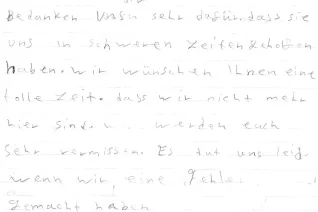 Bedanken uns sehr dafür. dass sie
uns in schweren Zeiten geholfen
haben. wir wünschen Ihnen eine
tolle Zeit. dass wir nicht mehr
hier sind. werden euch
sehr vermissen. Es tut uns leid.
wenn wir eine Fehler
gemacht haben